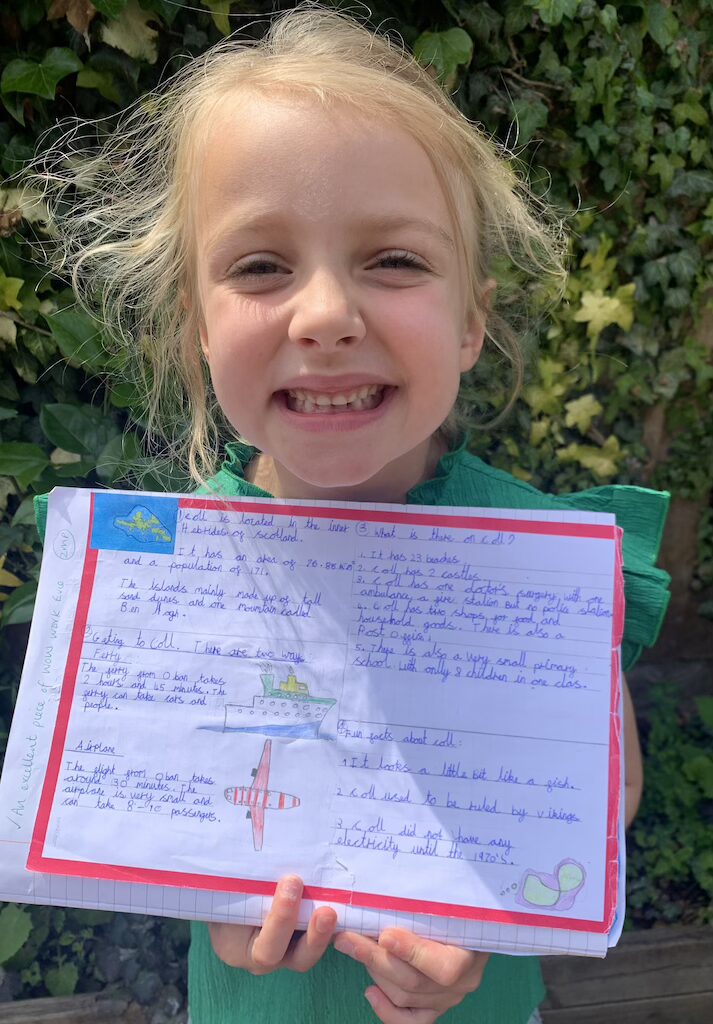 ① Coll is located in the inner
Hebrides of Scotland.
It has an area of 76.85 Km²
and a population of 171.
The Islands mainly made up of tall
sand dunes and one mountain called
Ben Hogh.
② Getting to Coll. There are two ways
Ferry
The ferry from Oban takes
2 hours and 45 minutes. The
ferry can take cars and
people.
Airplane
The flight from Oban takes
around 30 minutes. The
airplane is very small and
can take 8-10 passengers.
③ What is there on Coll?
1. It has 23 beaches
2. Coll has 2 castles
3. Coll has one doctor's surgery, with one
ambulance, a fire station But no police station
4. Coll has two shops, for food and
household goods. There is also a
Post Office.
5. There is also a very small primary
school with only 8 children in one clas.
④ Fun facts about Coll:
1 It looks a little bit like a fish.
2 Coll used to be ruled by vikings
3 Coll did not have any
electricity until the 1970's.
✓An excellent piece of wow work Evie
2MP